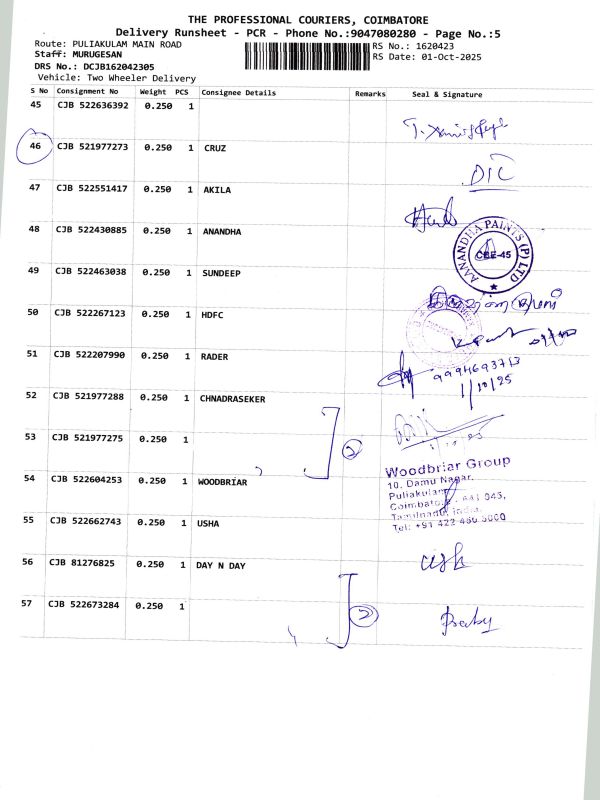 THE PROFESSIONAL COURIERS, COIMBATORE
Delivery Runsheet - PCR - Phone No.:9047080280 - Page No.:5
Route: PULIAKULAM MAIN ROAD
RS No.: 1620423
Staff: MURUGESAN
RS Date: 01-Oct-2025
DRS No.: DCJB162042305
Vehicle: Two Wheeler Delivery
S No Consignment No Weight PCS Consignee Details Remarks Seal & Signature
45 CJB 522636392 0.250 1
46 CJB 521977273 0.250 1 CRUZ
47 CJB 522551417 0.250 1 AKILA
48 CJB 522430885 0.250 1 ANANDHA
AANANDHA PAINTS (P) LTD
CBE-45
49 CJB 522463038 0.250 1 SUNDEEP
50 CJB 522267123 0.250 1 HDFC
51 CJB 522207990 0.250 1 RADER
9994693713
1/10/25
52 CJB 521977288 0.250 1 CHNADRASEKER
53 CJB 521977275 0.250 1
2
54 CJB 522604253 0.250 1 WOODBRIAR
Woodbriar Group
10, Damu Nagar,
Puliakulam
Coimbatore - 641 045,
Tamilnadu, India.
Tel: +91 422 450 5000
55 CJB 522662743 0.250 1 USHA
56 CJB 81276825 0.250 1 DAY N DAY
ush
57 CJB 522673284 0.250 1
2
Baby